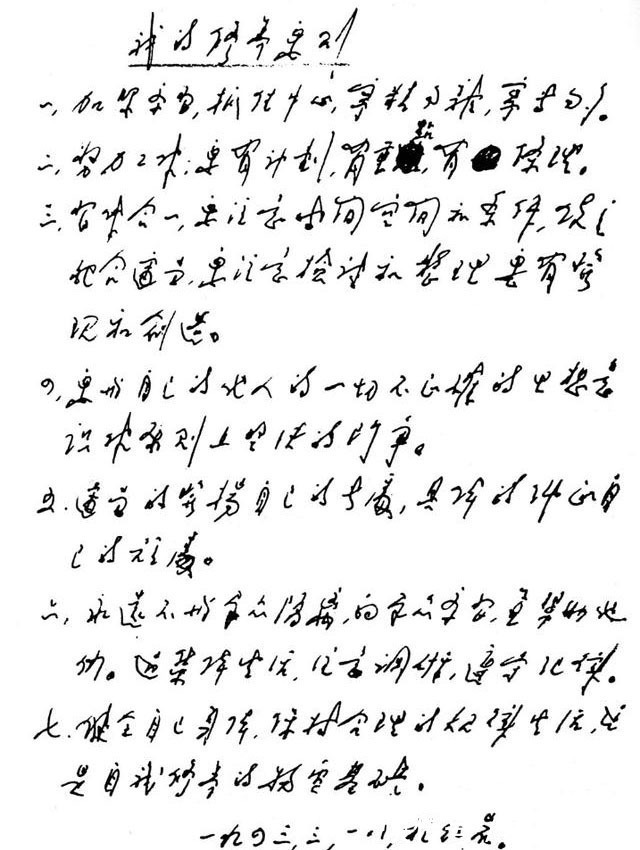 我的修养要则
一、加紧学习，抓住中心，宁精勿杂，宁专勿多。
二、努力工作，要有计划，有重點，有条理。
三、习作合一，要注意时间空间和条件，使之
配合适当，要注意检讨和整理，要有发
现和创造。
四、要与自己的他人的一切不正确的思想意
识作原则上坚决的斗争。
五、适当的发扬自己的长处，具体的纠正自
己的短处。
六、永远不与群众隔离，向群众学习，并帮助他
们。过集体生活，注意调研，遵守纪律。
七、健全自己身体，保持合理的规律生活，这
是自我修养的物质基础。
一九四三，三，一八，于红岩。